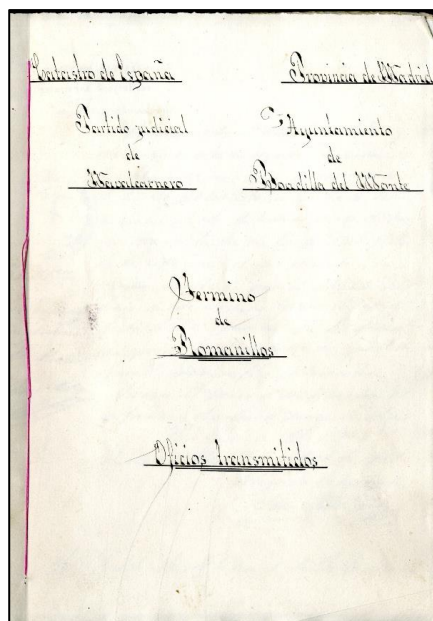 Catastro de España
Provincia de Madrid
Partido judicial
de
Navalcarnero
Ayuntamiento
de
Boadilla del Monte
Término
de
Romanillos
Oficios transmitidos